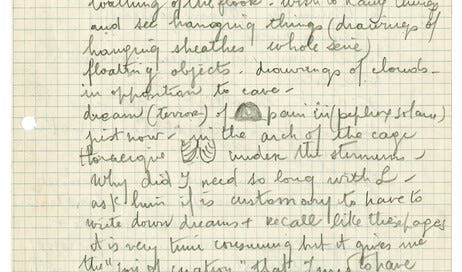 loathing of the flock - wish to hang things
and see hanging things (drawings of
hanging sheathes whole serie)
floating objects - drawings of clouds -
in opposition to cave -
dream (terror) of pain in (plexus solare)
just now - in the arch of the cage
thoracique under the sternum -
Why did I need so long with L -
ask him if is customary to have to
write down dreams + recall like these pages
it is very time consuming but it gives me
the "joie of creation" that I to have